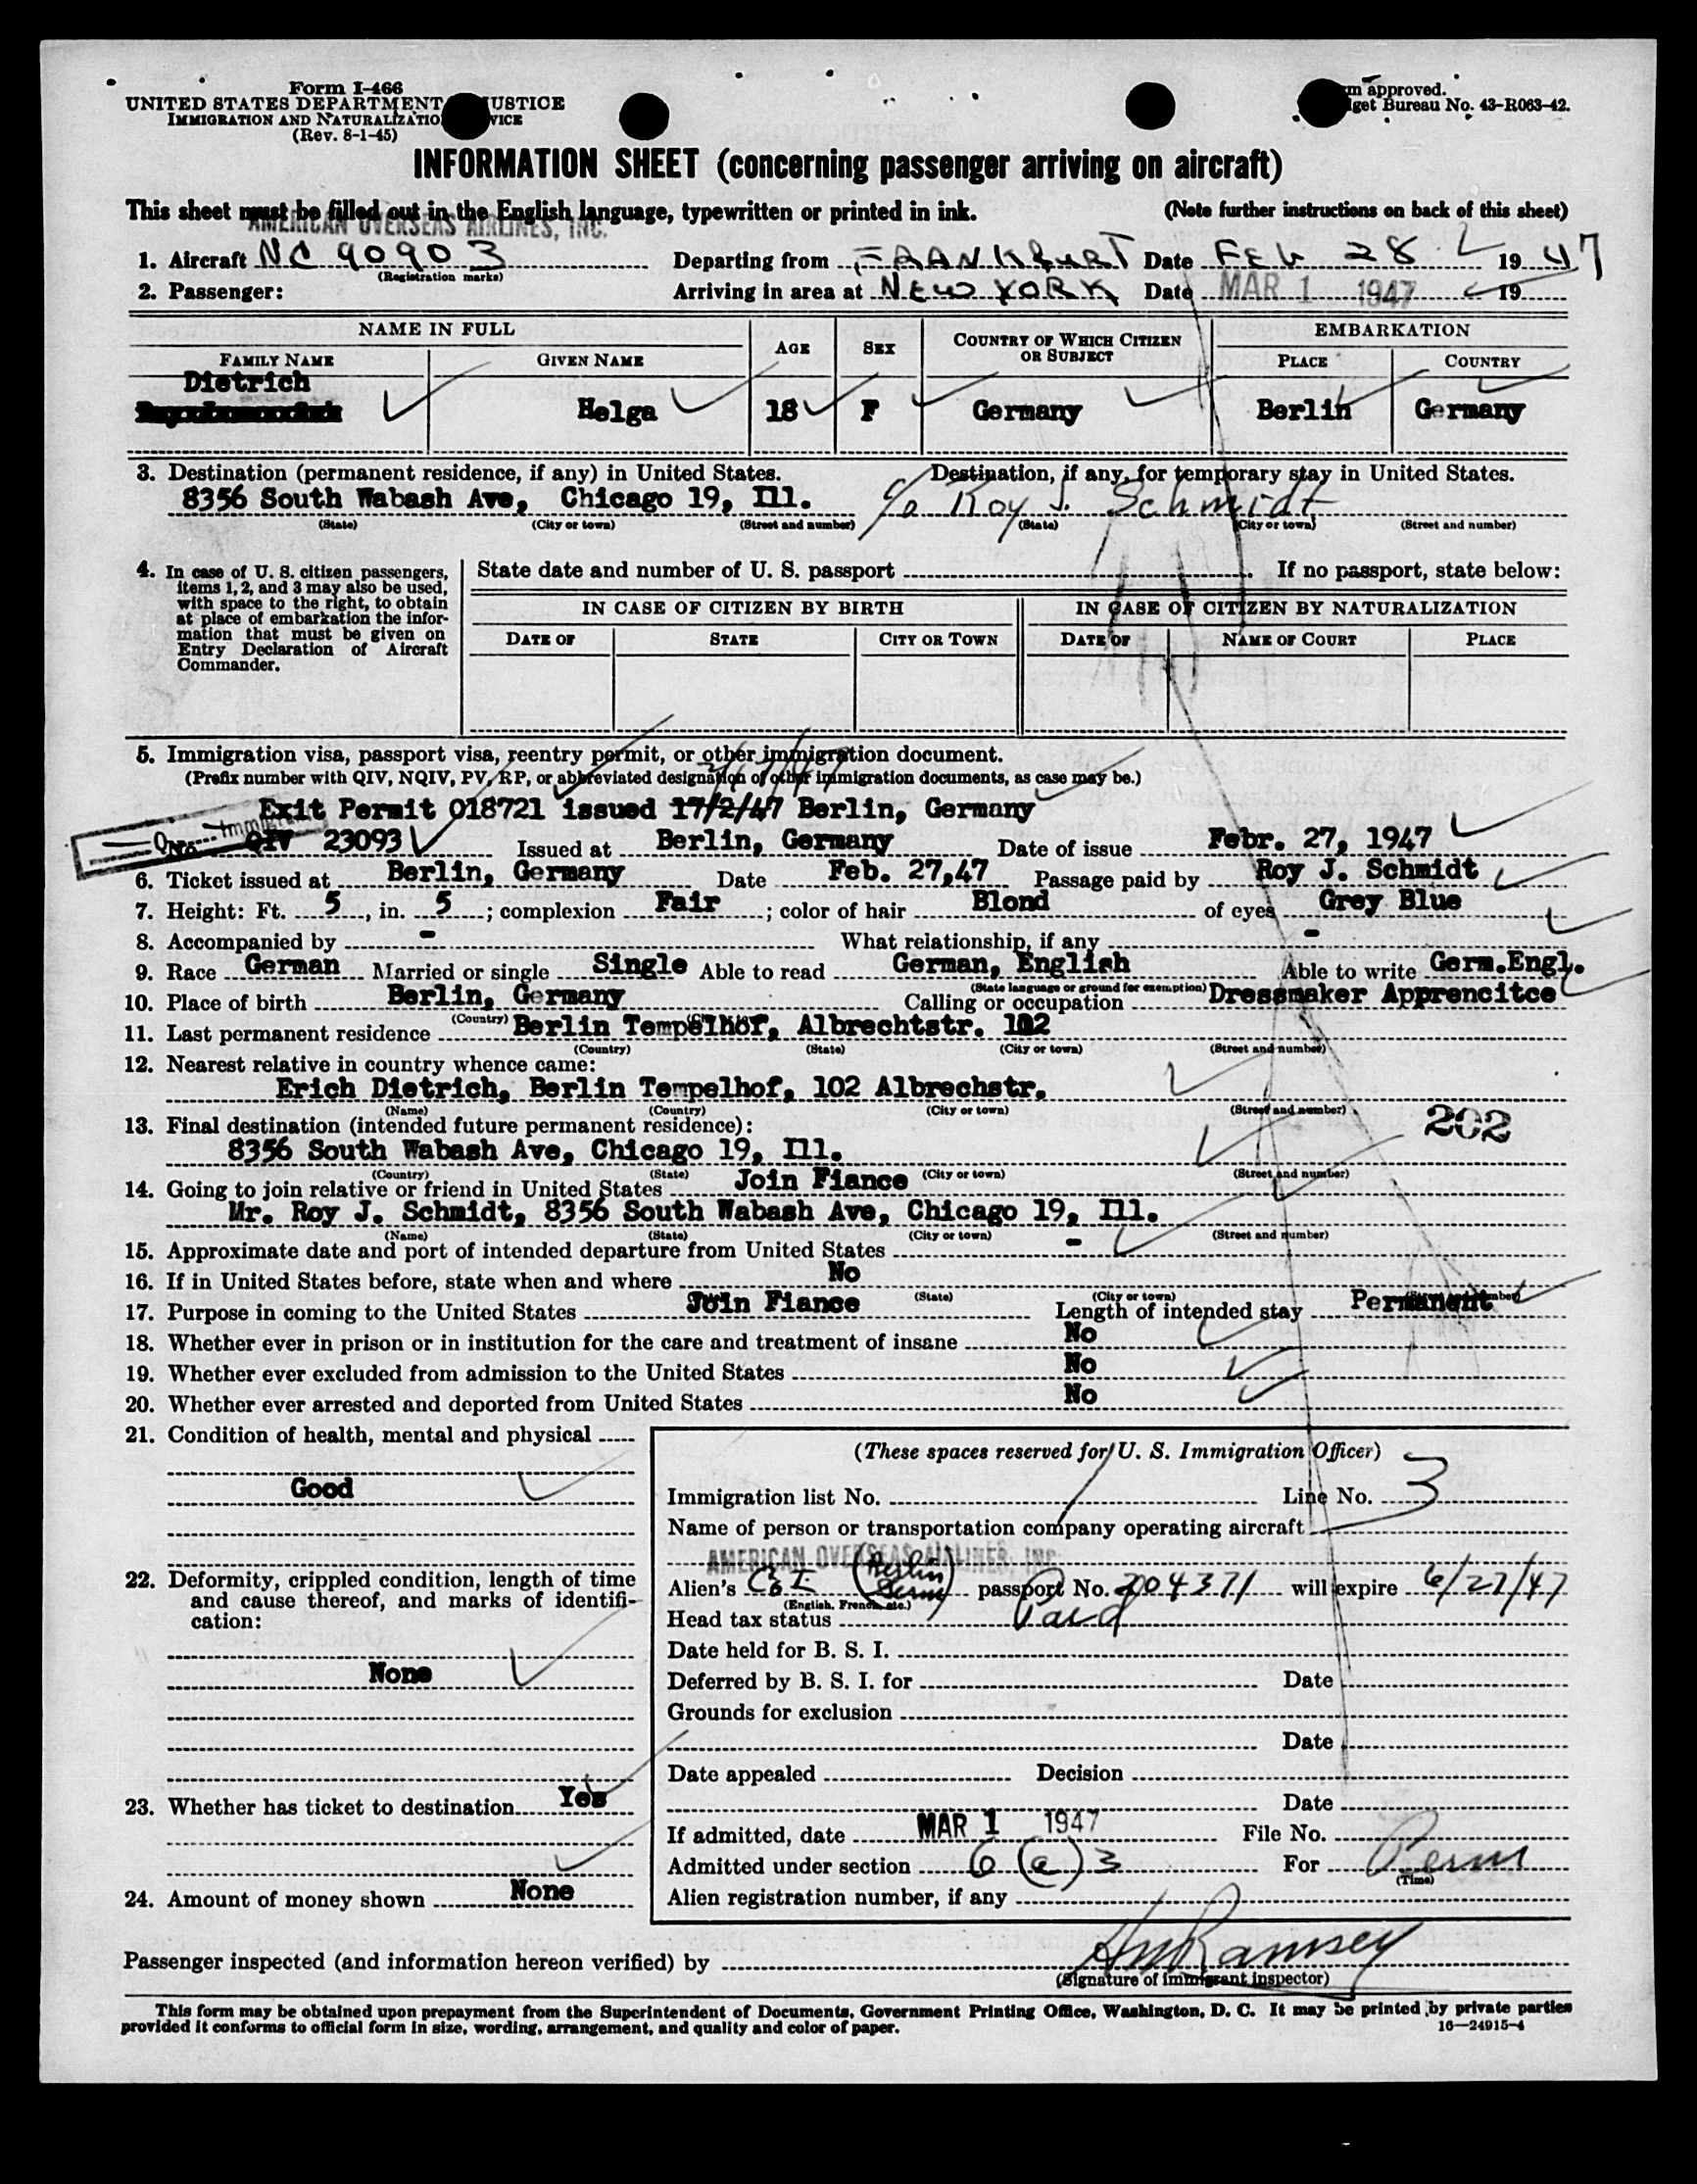 Form I-466
UNITED STATES DEPARTMENT USTICE
IMMIGRATION AND NATURALIZATIO VICE
(Rev. 8-1-45)
m approved.
get Bureau No. 43-R063-42.
INFORMATION SHEET (concerning passenger arriving on aircraft)
This sheet must be filled out in the English language, typewritten or printed in ink. (Note further instructions on back of this sheet)
AMERICAN OVERSEAS AIRLINES, INC.
1. Aircraft NC 90903 Departing from FRANKFURT Date FEb 28 1947
(Registration marks)
2. Passenger: Arriving in area at NEW YORK Date MAR 1 1947 19
NAME IN FULL AGE SEX COUNTRY OF WHICH CITIZEN OR SUBJECT EMBARKATION
FAMILY NAME GIVEN NAME PLACE COUNTRY
Dietrich
Helga 18 F Germany Berlin Germany
3. Destination (permanent residence, if any) in United States. Destination, if any, for temporary stay in United States.
8356 South Wabash Ave, Chicago 19, Ill. c/o Roy J. Schmidt
(State) (City or town) (Street and number) (State) (City or town) (Street and number)
4. In case of U. S. citizen passengers, items 1, 2, and 3 may also be used, with space to the right, to obtain at place of embarkation the information that must be given on Entry Declaration of Aircraft Commander.
State date and number of U. S. passport If no passport, state below:
IN CASE OF CITIZEN BY BIRTH IN CASE OF CITIZEN BY NATURALIZATION
DATE OF STATE CITY OR TOWN DATE OF NAME OF COURT PLACE
5. Immigration visa, passport visa, reentry permit, or other immigration document.
(Prefix number with QIV, NQIV, PV, RP, or abbreviated designation of other immigration documents, as case may be.)
Exit Permit 018721 issued 17/2/47 Berlin, Germany
QIV 23093 Issued at Berlin, Germany Date of issue Febr. 27, 1947
6. Ticket issued at Berlin, Germany Date Feb. 27,47 Passage paid by Roy J. Schmidt
7. Height: Ft. 5, in. 5; complexion Fair; color of hair Blond of eyes Grey Blue
8. Accompanied by - What relationship, if any -
9. Race German Married or single Single Able to read German, English Able to write Germ.Engl.
(State language or ground for exemption)
10. Place of birth Berlin, Germany Calling or occupation Dressmaker Apprencitce
(Country)
11. Last permanent residence Berlin Tempelhof, Albrechtstr. 102
(Country) (State) (City or town) (Street and number)
12. Nearest relative in country whence came:
Erich Dietrich, Berlin Tempelhof, 102 Albrechstr.
(Name) (Country) (City or town) (Street and number)
202
13. Final destination (intended future permanent residence):
8356 South Wabash Ave, Chicago 19, Ill.
(Country) (State) (City or town) (Street and number)
14. Going to join relative or friend in United States Join Fiance
Mr. Roy J. Schmidt, 8356 South Wabash Ave, Chicago 19, Ill.
(Name) (State) (City or town) (Street and number)
15. Approximate date and port of intended departure from United States -
16. If in United States before, state when and where No
(State) (City or town)
17. Purpose in coming to the United States Join Fiance Length of intended stay Permanent
18. Whether ever in prison or in institution for the care and treatment of insane No
19. Whether ever excluded from admission to the United States No
20. Whether ever arrested and deported from United States No
21. Condition of health, mental and physical
Good
22. Deformity, crippled condition, length of time and cause thereof, and marks of identification:
None
23. Whether has ticket to destination Yes
24. Amount of money shown None
(These spaces reserved for U. S. Immigration Officer)
Immigration list No. Line No. 3
Name of person or transportation company operating aircraft
AMERICAN OVERSEAS AIRLINES, INC.
Alien's (Berlin Germ) passport No. 204371 will expire 6/27/47
(English, French, etc.)
Head tax status Paid
Date held for B. S. I.
Deferred by B. S. I. for Date
Grounds for exclusion
Date
Date appealed Decision
Date
If admitted, date MAR 1 1947 File No.
Admitted under section 6 (a) 3 For Perm
(Time)
Alien registration number, if any
Passenger inspected (and information hereon verified) by Ramsey
(Signature of immigrant inspector)
This form may be obtained upon prepayment from the Superintendent of Documents, Government Printing Office, Washington, D. C. It may be printed by private parties
provided it conforms to official form in size, wording, arrangement, and quality and color of paper. 16—24915-4